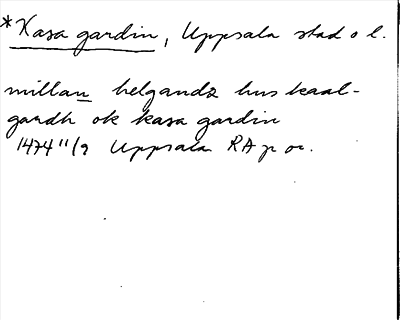 *Kasa gardin, Uppsala stad o l.
millan helgandz hus kaal-
gardh ok kasa gardin
1474 11/9 Uppsala RA p or.